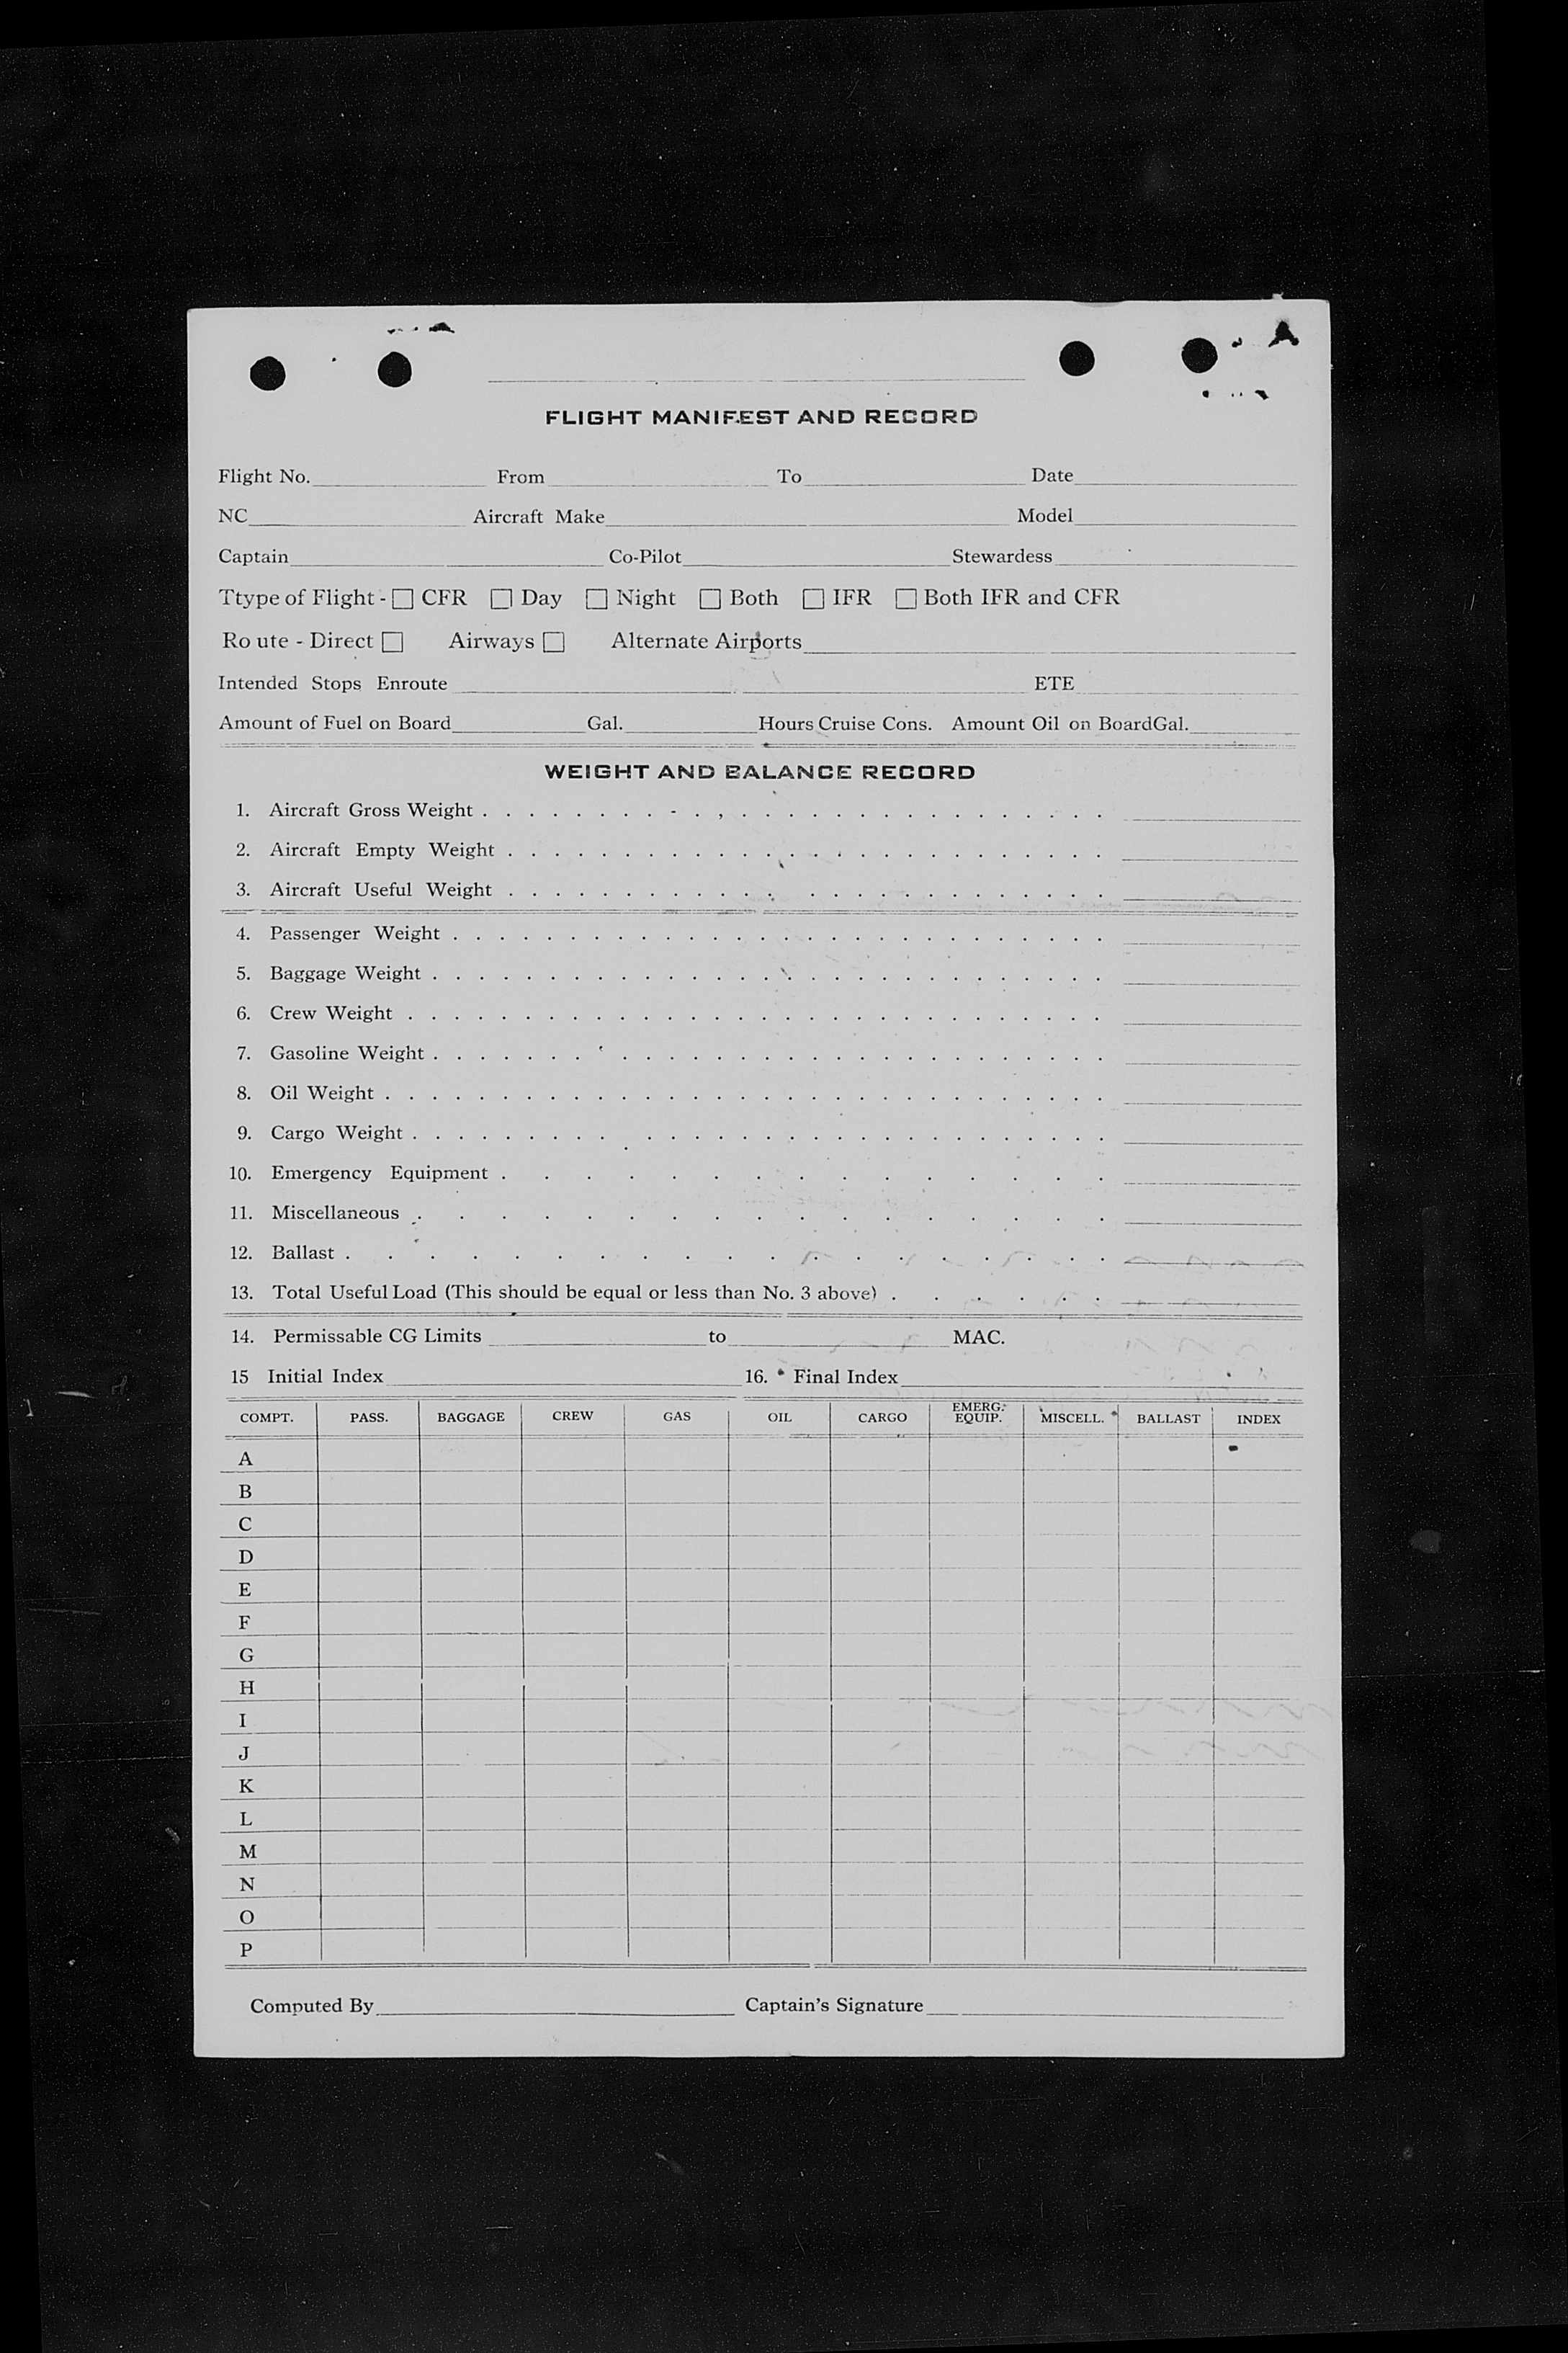 FLIGHT MANIFEST AND RECORD
Flight No. From To Date
NC Aircraft Make Model
Captain Co-Pilot Stewardess
Ttype of Flight - CFR Day Night Both IFR Both IFR and CFR
Ro ute - Direct Airways Alternate Airports
Intended Stops Enroute ETE
Amount of Fuel on Board Gal. Hours Cruise Cons. Amount Oil on BoardGal.
WEIGHT AND BALANCE RECORD
1. Aircraft Gross Weight
2. Aircraft Empty Weight
3. Aircraft Useful Weight
4. Passenger Weight
5. Baggage Weight
6. Crew Weight
7. Gasoline Weight
8. Oil Weight
9. Cargo Weight
10. Emergency Equipment
11. Miscellaneous
12. Ballast
13. Total Useful Load (This should be equal or less than No. 3 above)
14. Permissable CG Limits to MAC.
15 Initial Index 16. Final Index
COMPT. PASS. BAGGAGE CREW GAS OIL CARGO EMERG. EQUIP. MISCELL. BALLAST INDEX
A
B
C
D
E
F
G
H
I
J
K
L
M
N
O
P
Computed By Captain's Signature